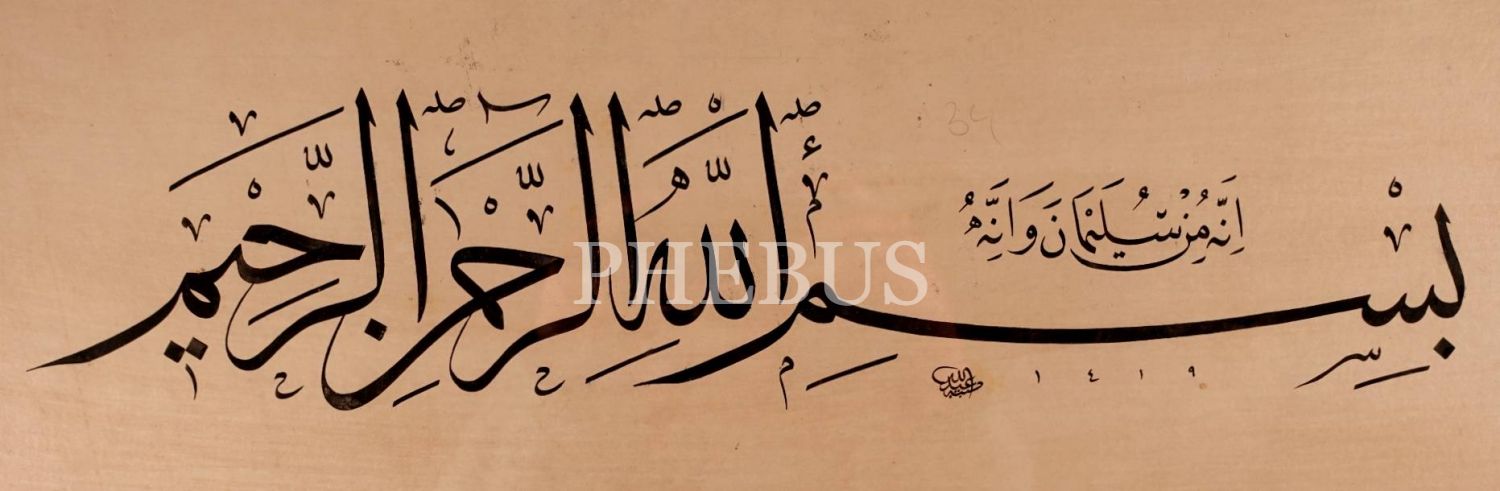 اِنَّهُ مِنْ سُلَيْمَانَ وَاِنَّهُ
بِسْمِ اللّٰهِ الرَّحْمٰنِ الرَّحِيمِ
١٤١٩
34
PHEBUS